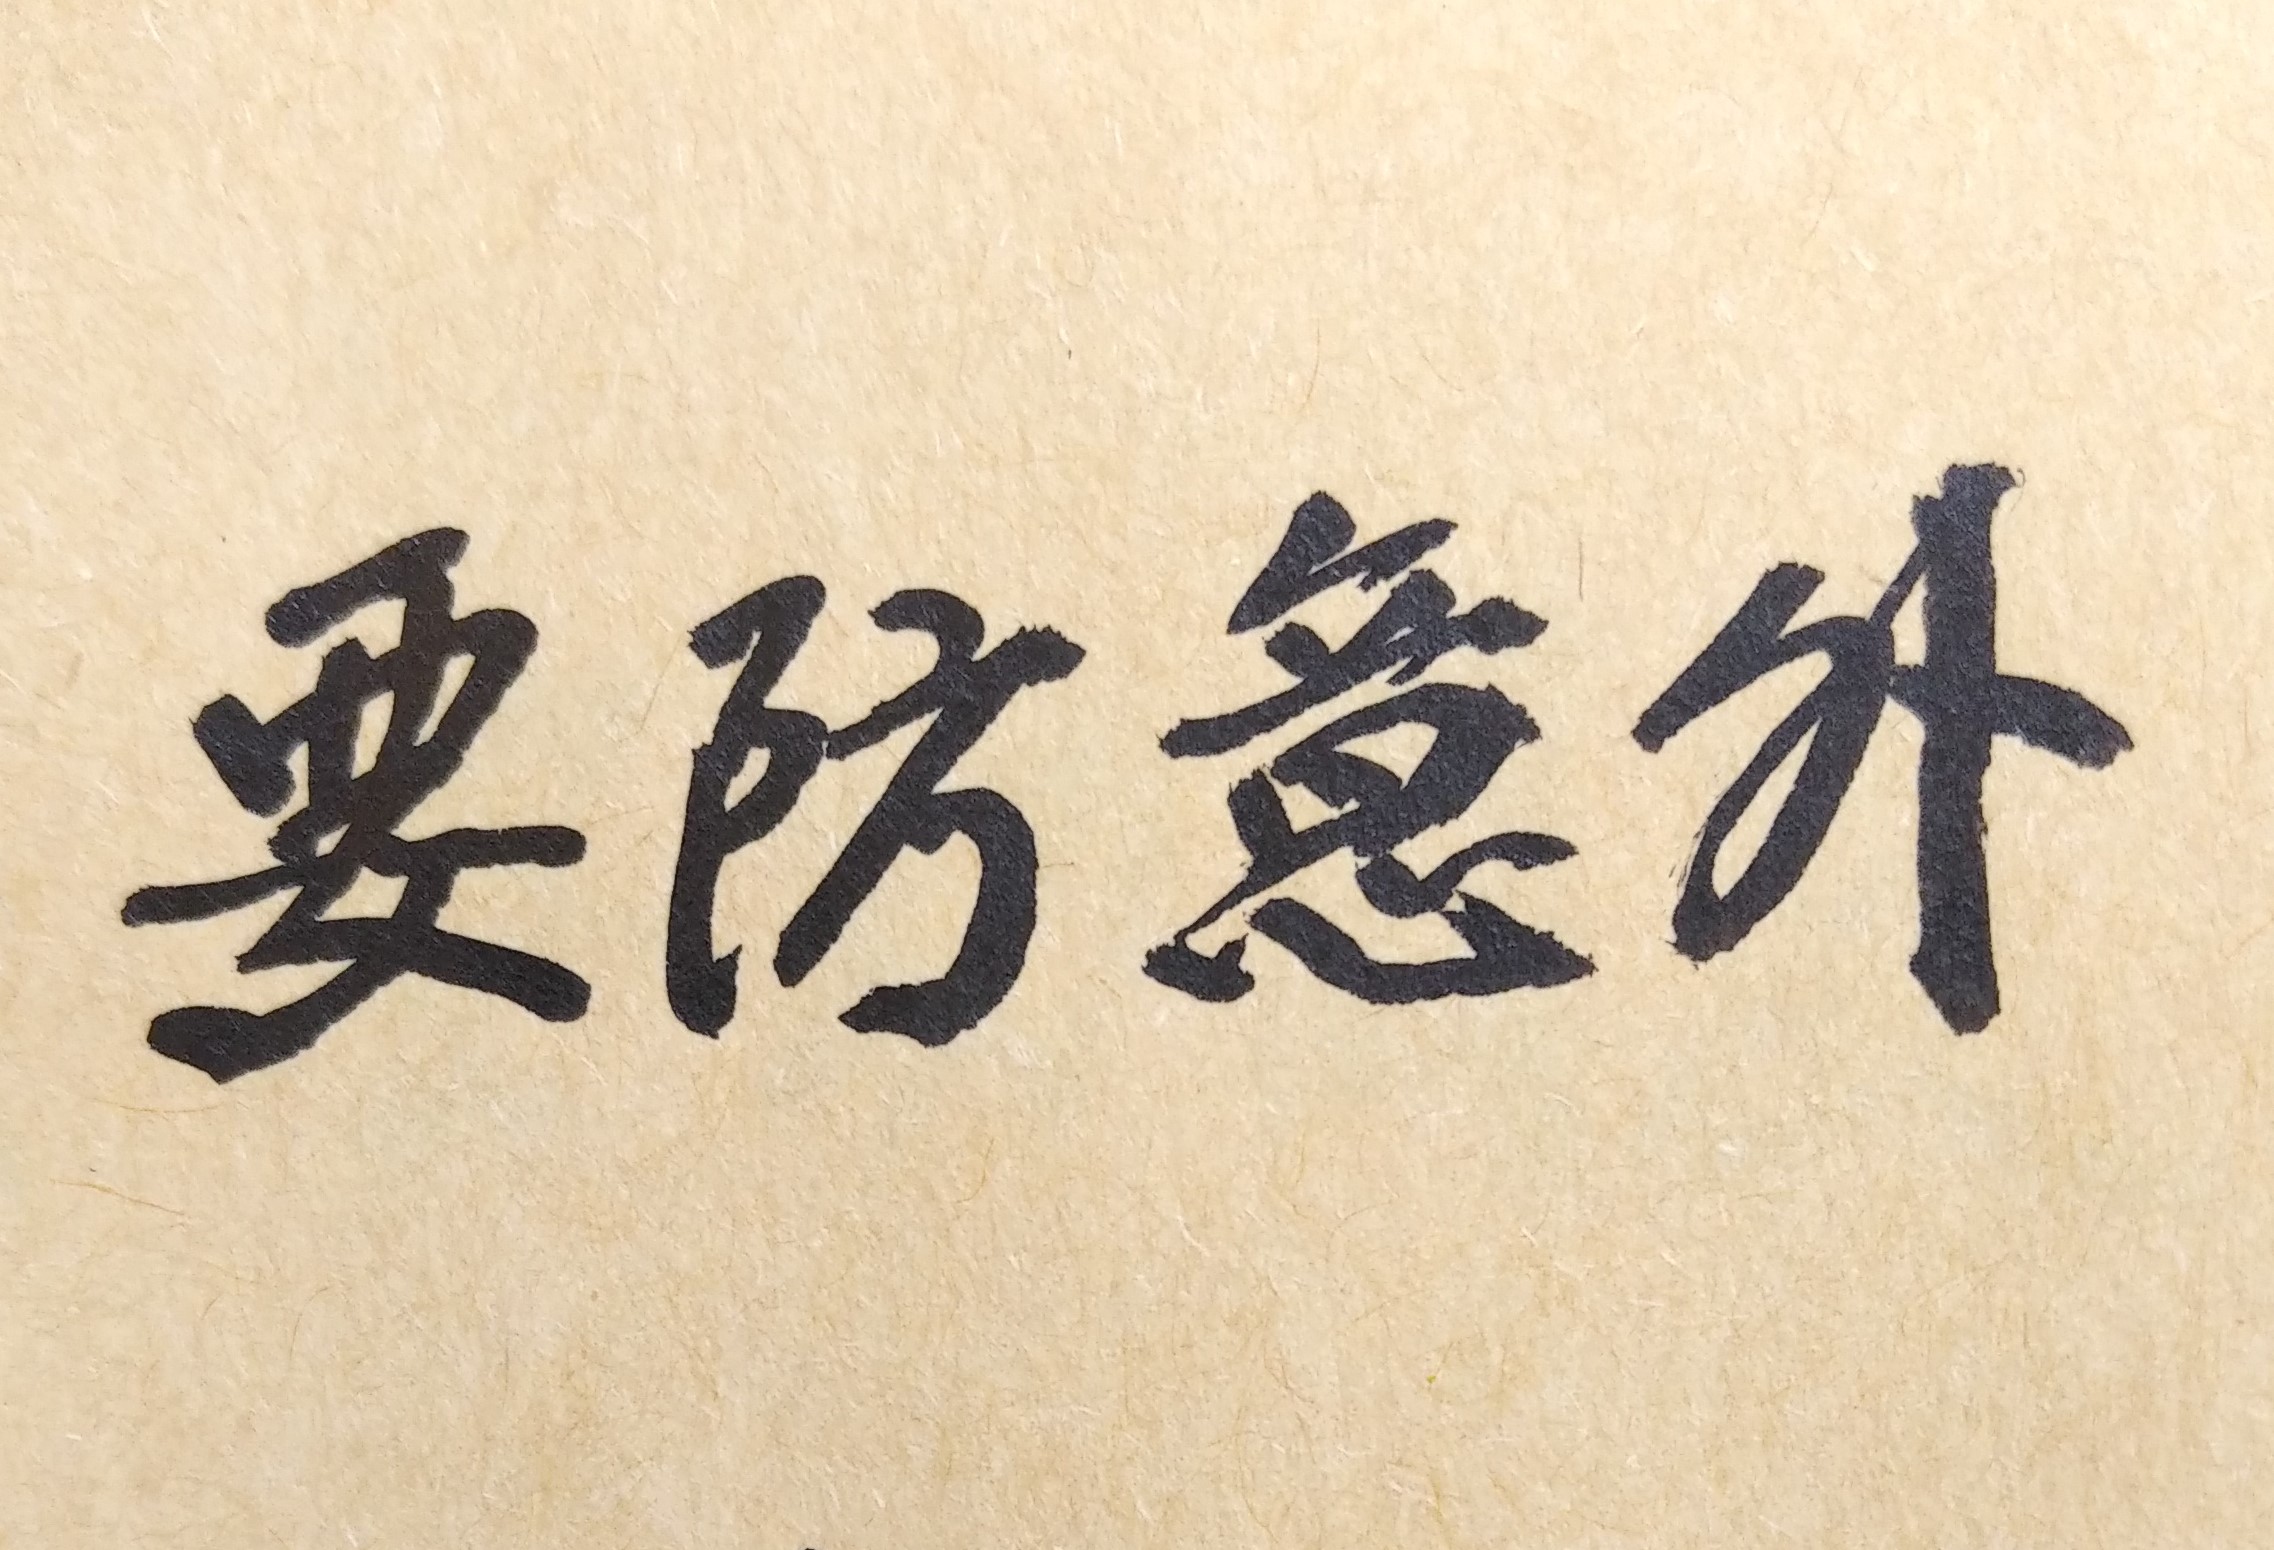 要防意外